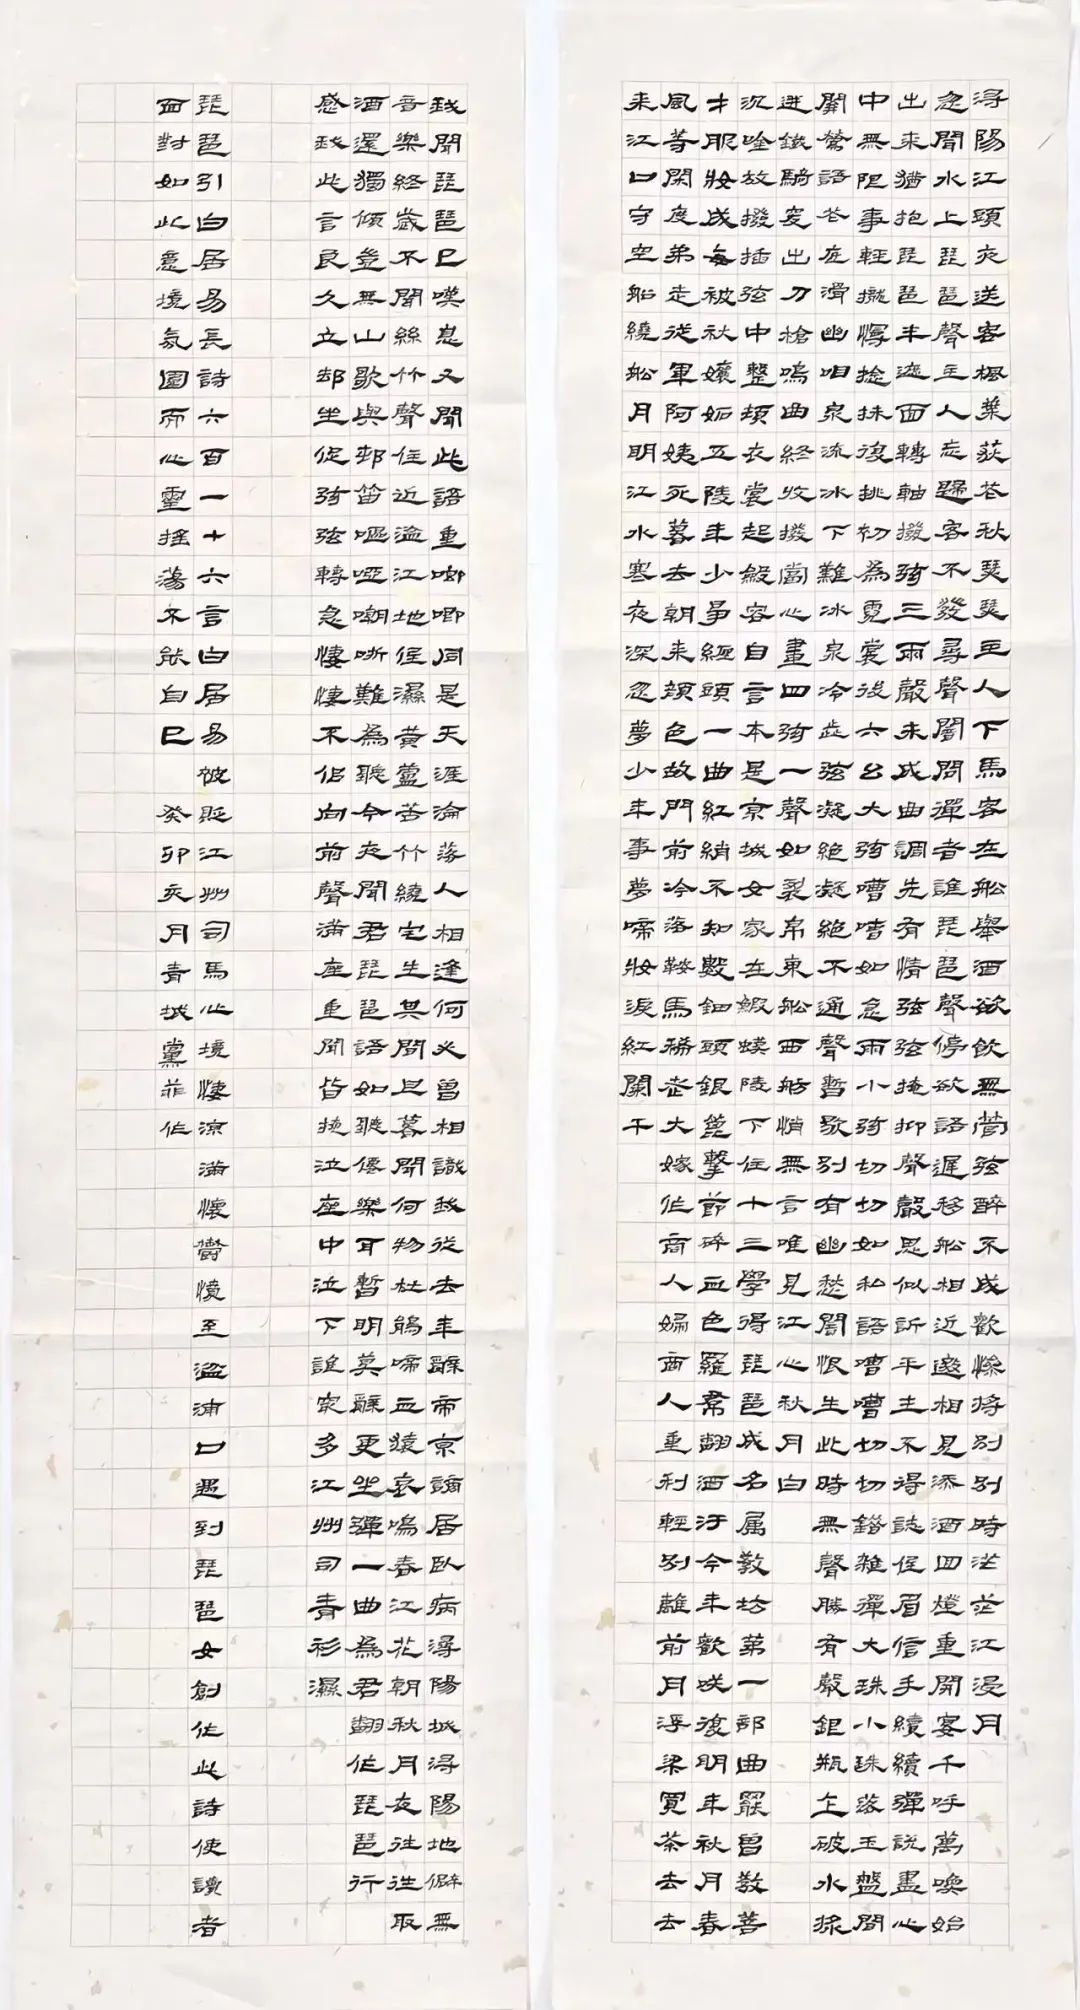 潯陽江頭夜送客楓葉荻花秋瑟瑟主人下馬客在船舉酒欲飲無管弦醉不成歡慘將別別時茫茫江浸月
忽聞水上琵琶聲主人忘歸客不發尋聲闇問彈者誰琵琶聲停欲語遲移船相近邀相見添酒回燈重開宴千呼萬喚始
出來猶抱琵琶半遮面轉軸撥弦三兩聲未成曲調先有情弦弦掩抑聲聲思似訴平生不得誌低眉信手續續彈說盡心
中無限事輕攏慢捻抹復挑初為霓裳後六幺大弦嘈嘈如急雨小弦切切如私語嘈嘈切切錯雜彈大珠小珠落玉盤間
關鶯語花底滑幽咽泉流冰下難冰泉冷澀弦凝絕凝絕不通聲暫歇別有幽愁闇恨生此時無聲勝有聲銀瓶乍破水漿
迸鐵騎突出刀槍鳴曲終收撥當心畫四弦一聲如裂帛東船西舫悄無言唯見江心秋月白
沉吟放撥插弦中整頓衣裳起斂容自言本是京城女家在蝦蟆陵下住十三學得琵琶成名属教坊第一部曲罷曾教善
才服妝成每被秋孃妬五陵年少爭纏頭一曲紅綃不知數鈿頭銀篦擊節碎血色羅裙翻酒汙今年歡笑復明年秋月春
風等閑度弟走從軍阿姨死暮去朝來顏色故門前冷落鞍馬稀老大嫁作商人婦商人重利輕別離前月浮梁買茶去去
來江口守空船繞船月明江水寒夜深忽夢少年事夢啼妝淚紅闌干
我聞琵琶已嘆息又聞此語重唧唧同是天涯淪落人相逢何必曾相識我從去年辭帝京謫居臥病潯陽城潯陽地僻無
音樂終歲不聞絲竹聲住近湓江地住濕黃蘆苦竹繞宅生其間旦暮聞何物杜鵑啼血猿哀鳴春江花朝秋月夜往往取
酒還獨傾豈無山歌與村笛嘔啞嘲哳難為聽今夜聞君琵琶語如聽僊樂耳暫明莫辭更坐彈一曲為君翻作琵琶行
感我此言良久立却坐促弦弦轉急悽悽不似向前聲滿座重聞皆掩泣座中泣下誰最多江州司青衫濕
琵琶引白居易長詩六百一十六言白居易被貶江州司馬心境悽涼滿懷鬱憤至湓浦口遇到琵琶女創作此詩使讀者
面對如此意境氛圍而心靈搖蕩不能自已 癸卯亥月青城黨菲作